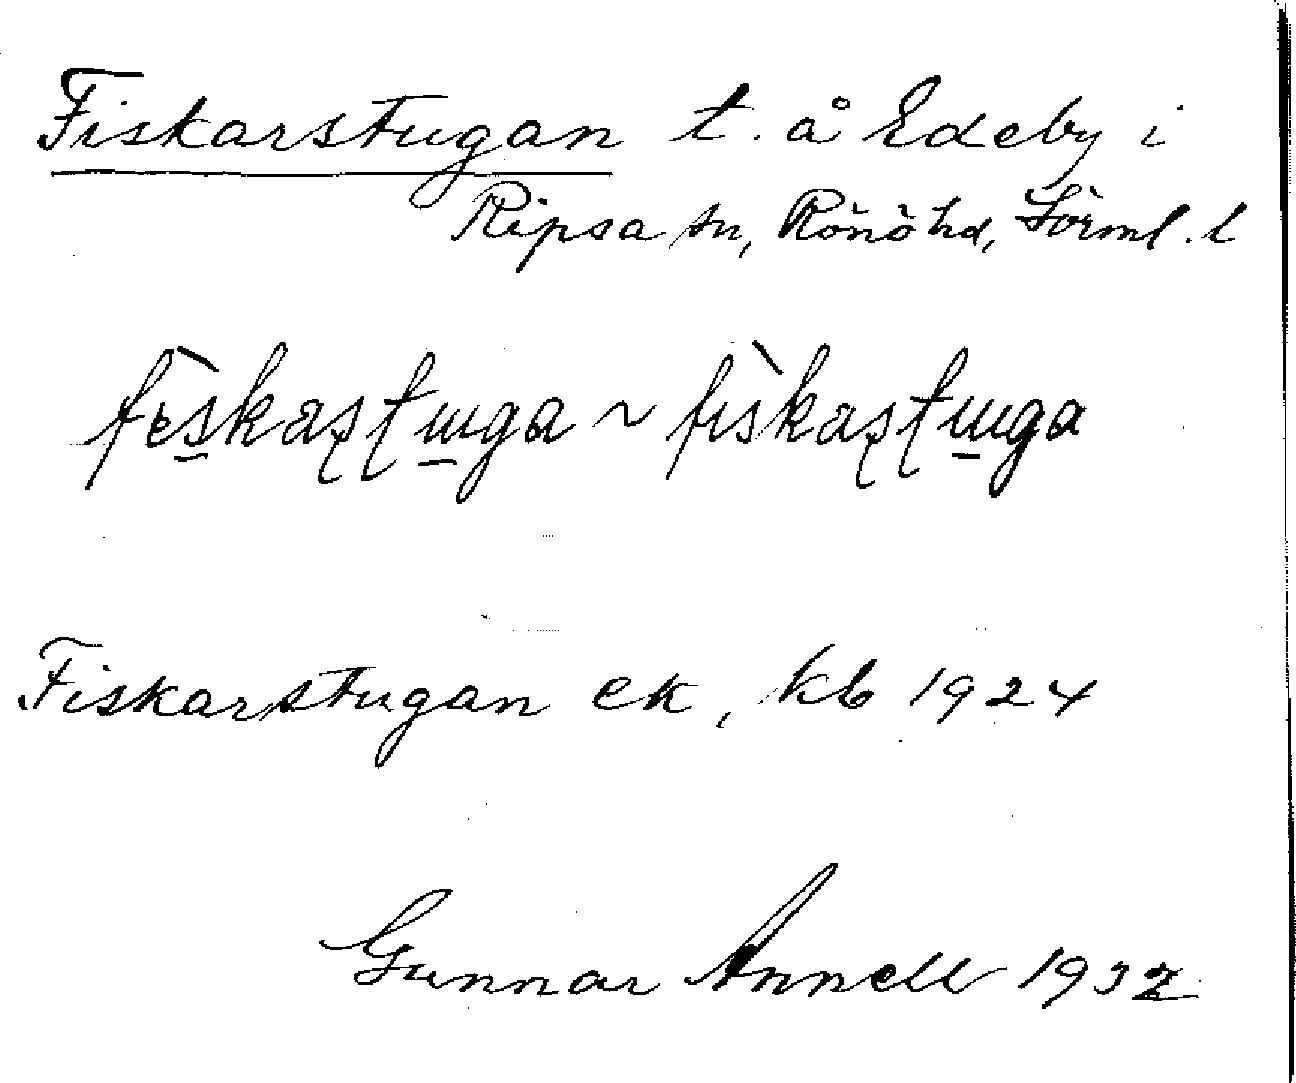 Fiskarstugan t. å Edeby i
Ripsa sn, Rönö hd, Sörml. l
Fiskarstugan ek, kb 1924
Gunnar Annell 1932